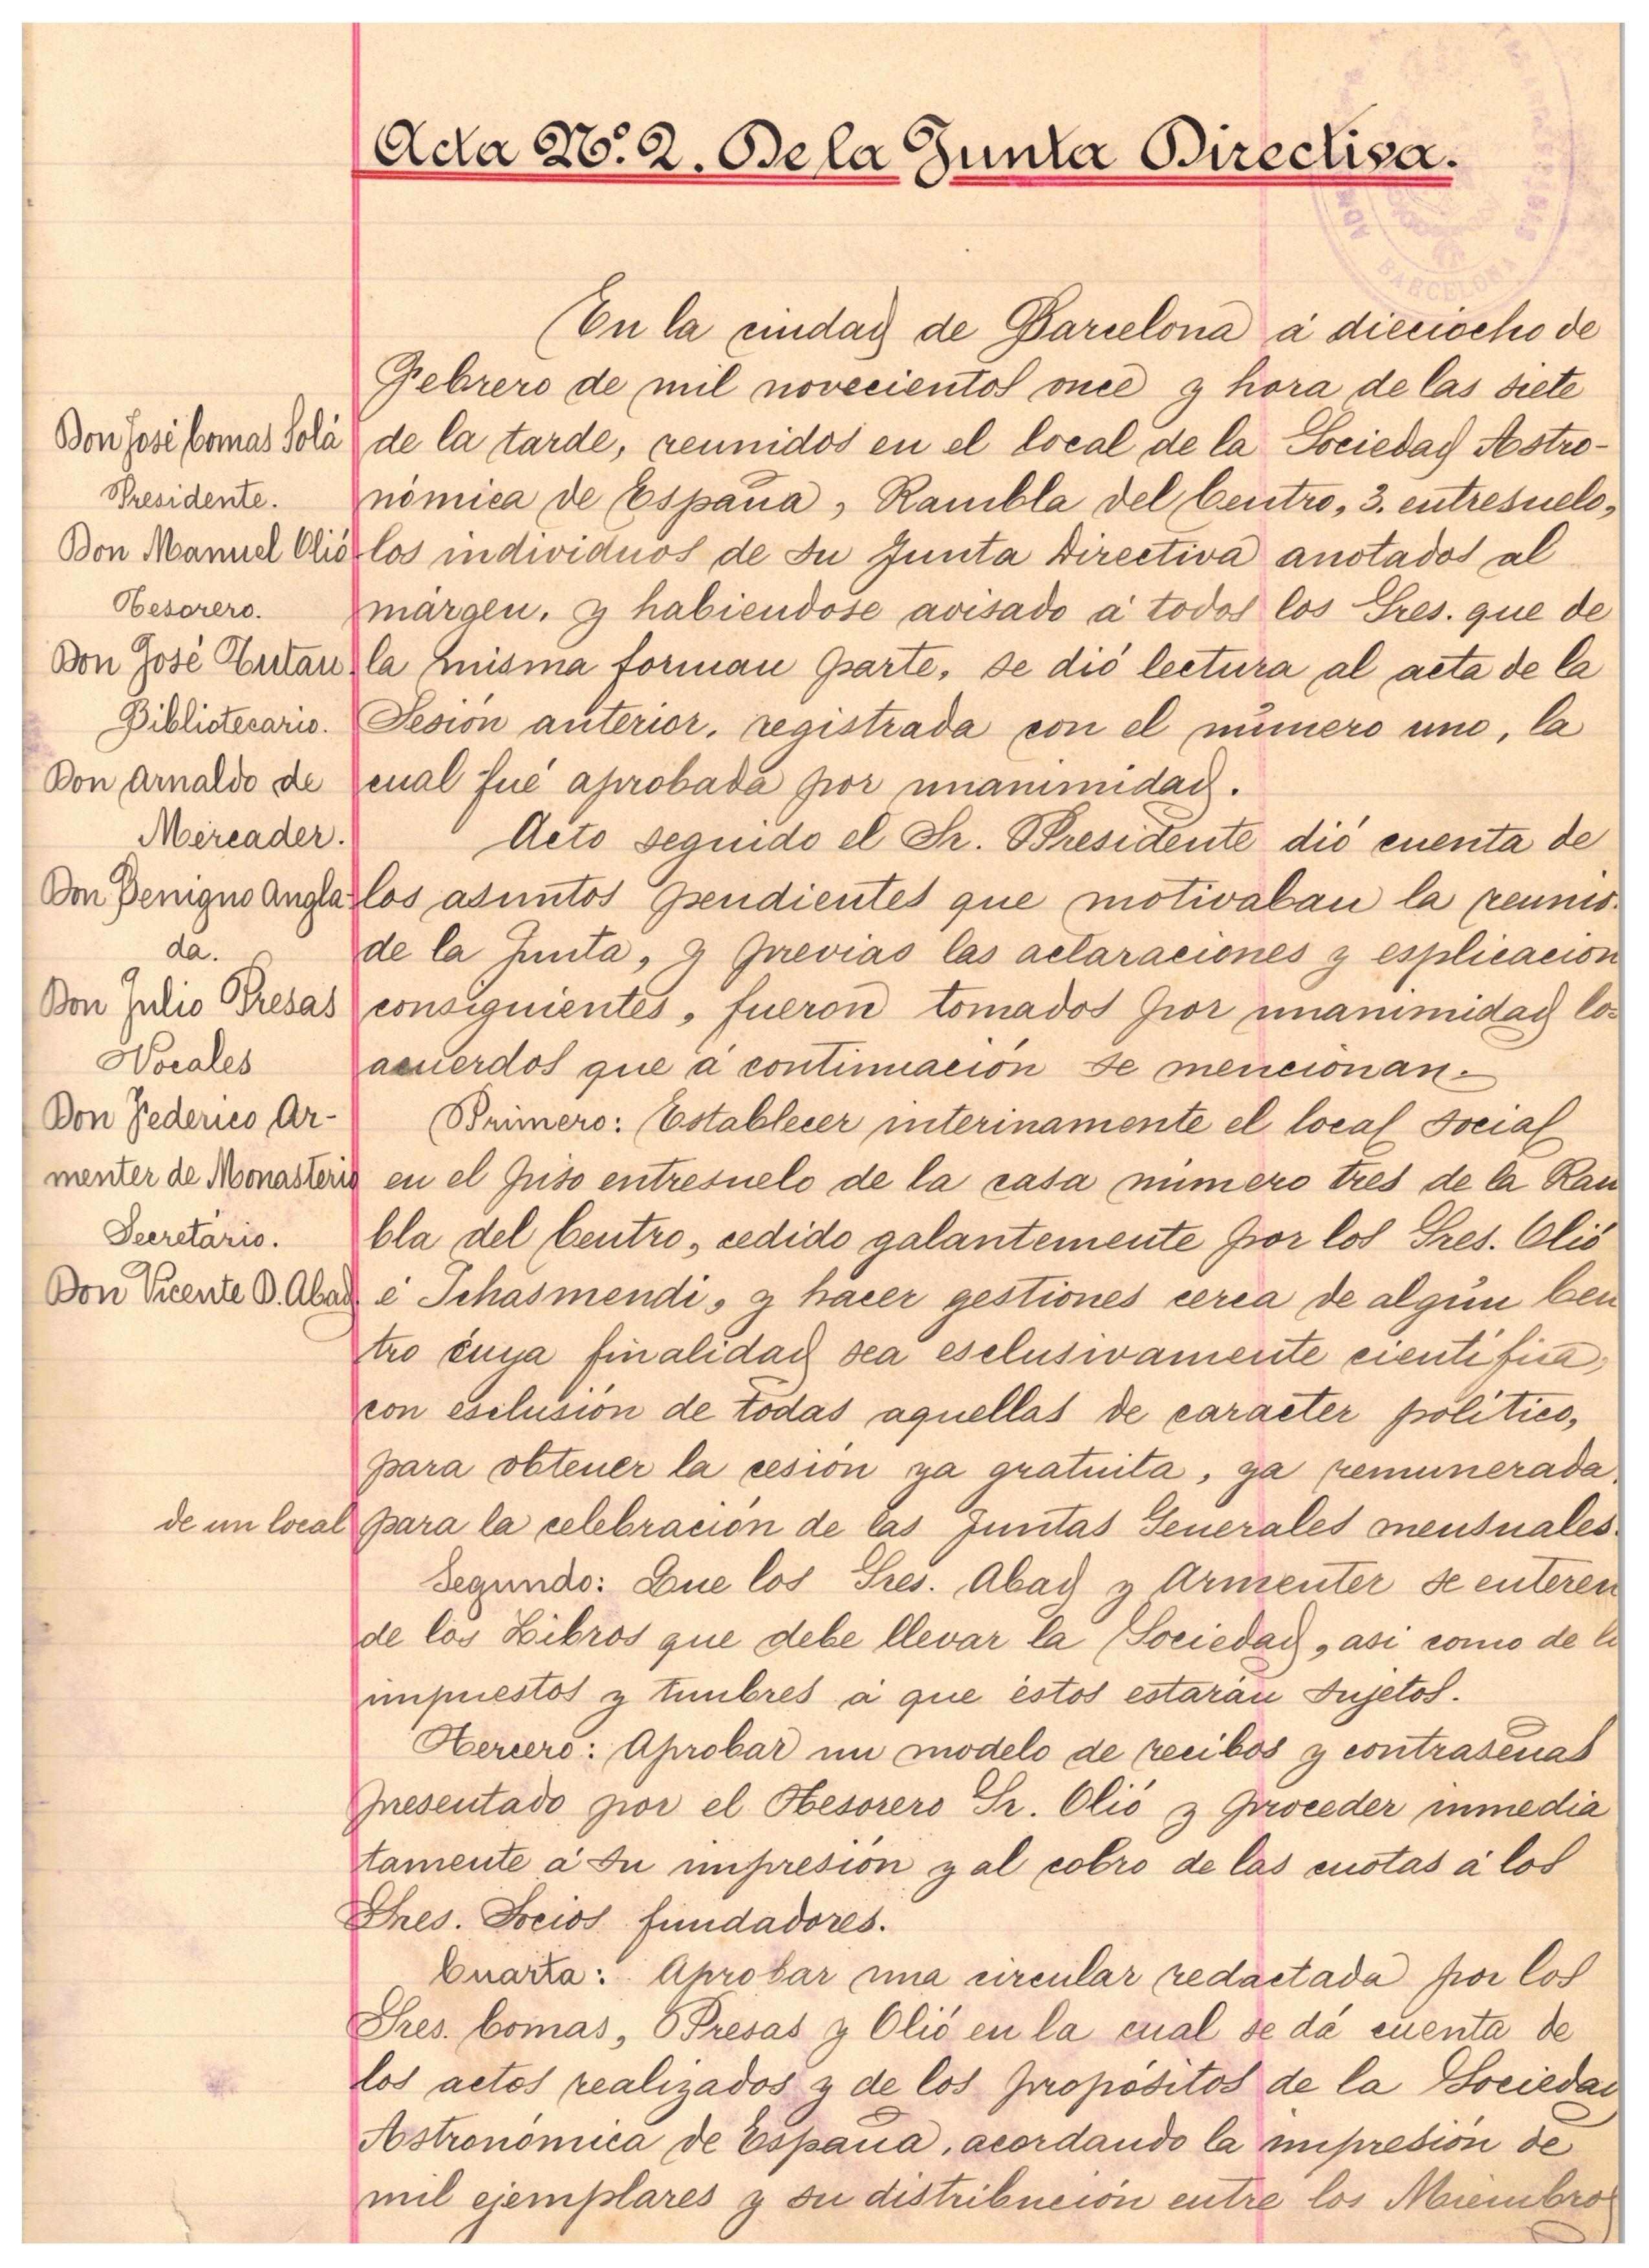 Acta Nº. 2. De la Junta Directiva.
BARCELONA
En la ciudad de Barcelona á dieciocho de
Febrero de mil novecientos once y hora de las siete
de la tarde, reunidos en el local de la Sociedad Astro-
nómica de España, Rambla del Centro, 3. entresuelo,
los individuos de su Junta Directiva anotados al
márgen, y habiendose avisado á todos los Sres. que de
la misma forman parte, se dió lectura al acta de la
Sesión anterior, registrada con el número uno, la
cual fué aprobada por unanimidad.
Acto seguido el Sr. Presidente dió cuenta de
los asuntos pendientes que motivaban la reunio
de la Junta, y previas las aclaraciones y esplicacion
consiguientes, fueron tomados por unanimidad los
acuerdos que á continuación se mencionan.-
Primero: Establecer interinamente el local social
en el piso entresuelo de la casa número tres de la Ram
bla del Centro, cedido galantemente por los Sres. Olió
é Ichasmendi, y hacer gestiones cerca de algún Cen
tro cuya finalidad sea esclusivamente científica,
con esclusión de todas aquellas de caracter político,
para obtener la cesión ya gratuita, ya remunerada,
de un local para la celebración de las Juntas Generales mensuales.
Segundo: Que los Sres. Abad y Armenter se enteren
de los Libros que debe llevar la Sociedad, asi como de l
impuestos y timbres á que éstos estarán sujetos.
Tercero: Aprobar un modelo de recibos y contraseñas
presentado por el Tesorero Sr. Olió y proceder inmedia
tamente á su impresión y al cobro de las cuotas á los
Sres. Socios fundadores.
Cuarta: Aprobar una circular redactada por los
Sres. Comas, Presas y Olió en la cual se dá cuenta de
los actos realizados y de los propósitos de la Sociedad
Astronómica de España, acordando la impresión de
mil ejemplares y su distribución entre los Miembros
Don José Comas Solá
Presidente.
Don Manuel Olió
Tesorero.
Don José Tutau
Bibliotecario.
Don Arnaldo de
Mercader.
Don Benigno Angla-
da.
Don Julio Presas
Vocales
Don Federico Ar-
menter de Monasterio
Secretario.
Don Vicente D. Abad